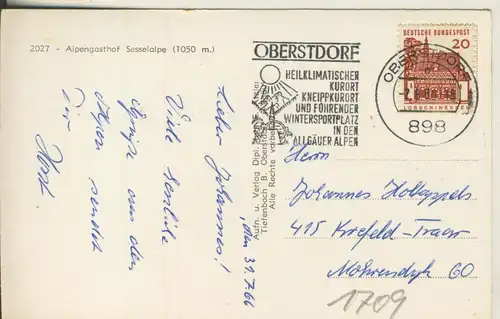 2027 - Alpengasthof Sesselalpe (1050 m.)
OBERSTDORF
HEILKLIMATISCHER
KURORT
KNEIPPKURORT
UND FÜHRENDER
WINTERSPORTPLATZ
IN DEN
ALLGÄUER ALPEN
DEUTSCHE BUNDESPOST
20
898
Aufn. u. Verlag Dipl.
Tiefenbach B. Oberstdorf
Alle Rechte
, den 31.7.66
Lieber Johannes!
Viele herzliche
Grüße aus den
Alpen sendet
Dir
Horst.
Herrn
Johannes Holtappels
415 Krefeld-Traar
Möhrendyk 60
1709